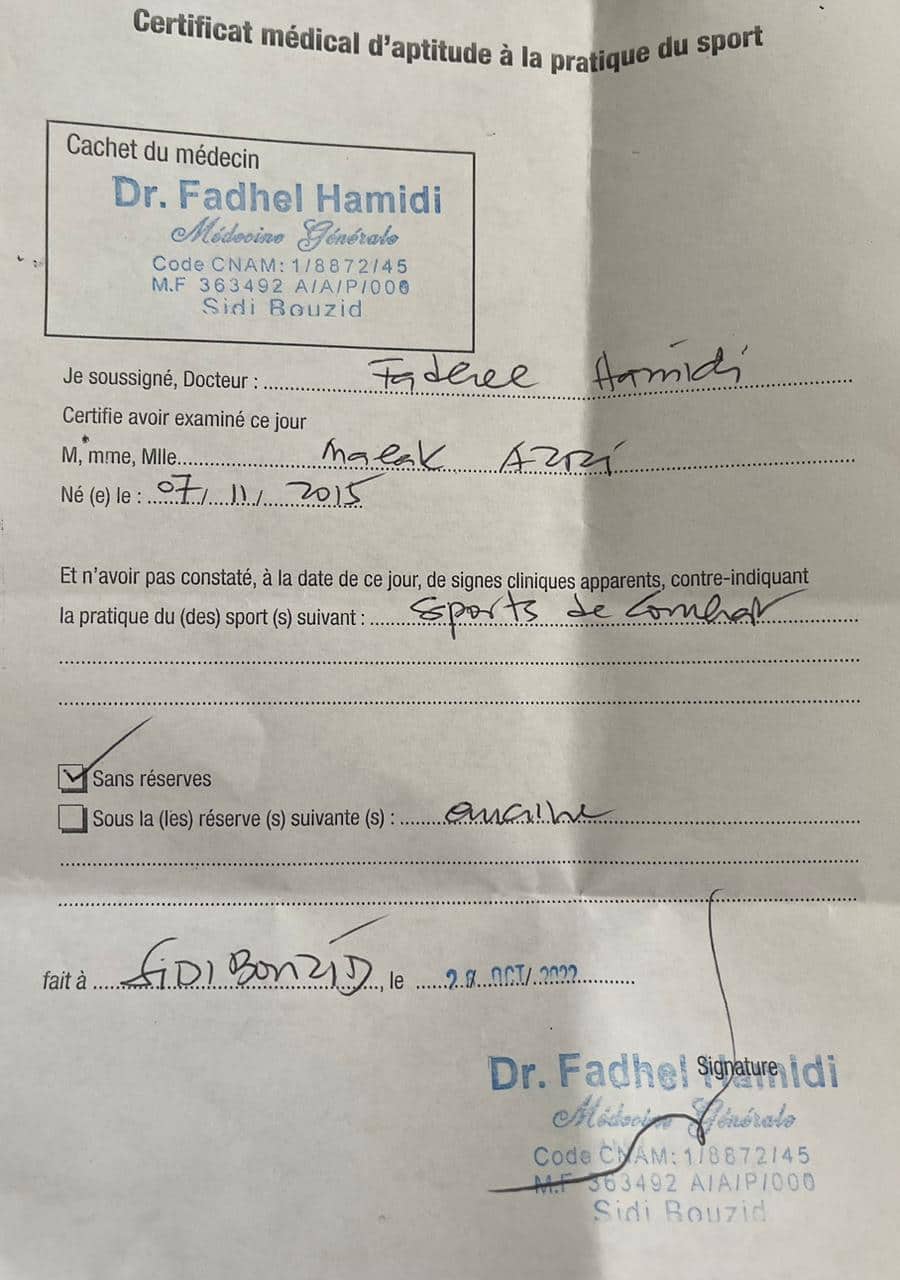 Certificat médical d'aptitude à la pratique du sport
Cachet du médecin
Dr. Fadhel Hamidi
Médecine Générale
Code CNAM: 1/8872/45
M.F 363492 A/A/P/000
Sidi Bouzid
Je soussigné, Docteur : Fadhel Hamidi
Certifie avoir examiné ce jour
M, mme, Mlle Malak Azizi
Né (e) le : 07/ 11/ 2015
Et n'avoir pas constaté, à la date de ce jour, de signes cliniques apparents, contre-indiquant
la pratique du (des) sport (s) suivant : Sports de Combat
Sans réserves
Sous la (les) réserve (s) suivante (s) :
fait à SIDI BOUZID, le 28 OCT/ 2022
Signature
Dr. Fadhel Hamidi
Médecine Générale
Code CNAM: 1/8872/45
M.F 363492 A/A/P/000
Sidi Bouzid